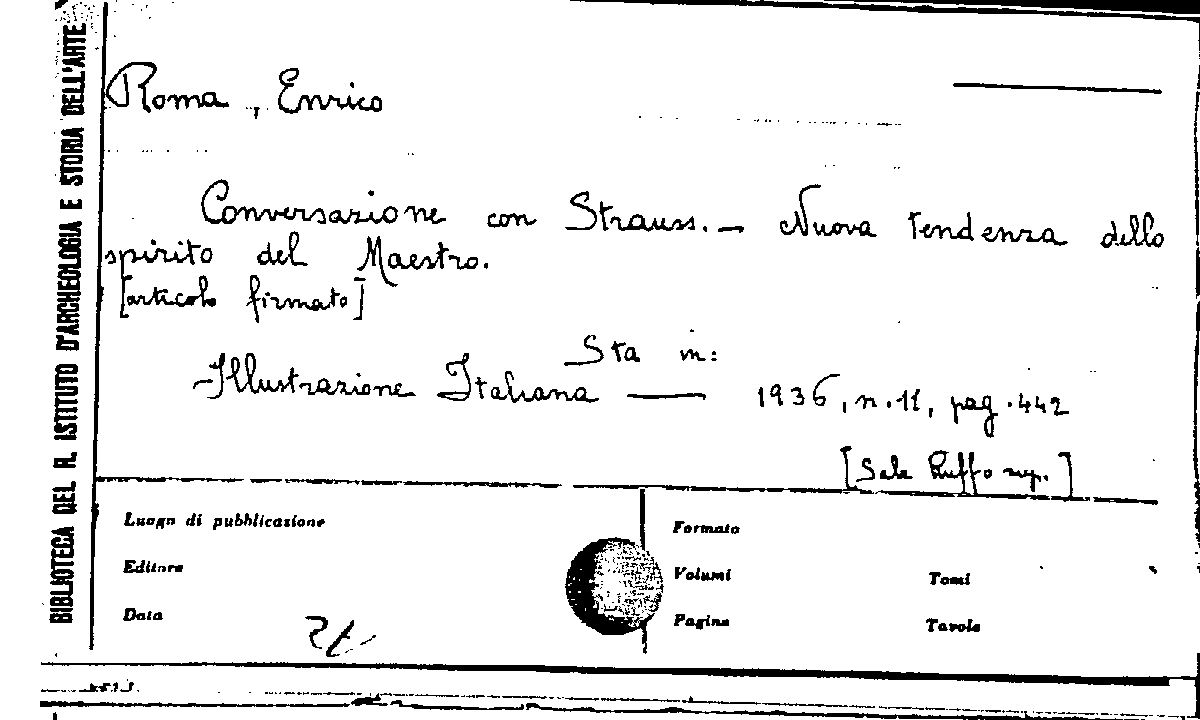 BIBLIOTECA DEL R. ISTITUTO D'ARCHEOLOGIA E STORIA DELL'ARTE
Roma, Enrico
Conversazione con Strauss. — Nuova tendenza dello
spirito del Maestro.
[articolo firmato]
Sta in:
Illustrazione Italiana — 1936, n. 11, pag. 442
[Sala Ruffo sup.]
Luogo di pubblicazione
Editore
Data
Formato
Volumi
Tomi
Pagine
Tavole